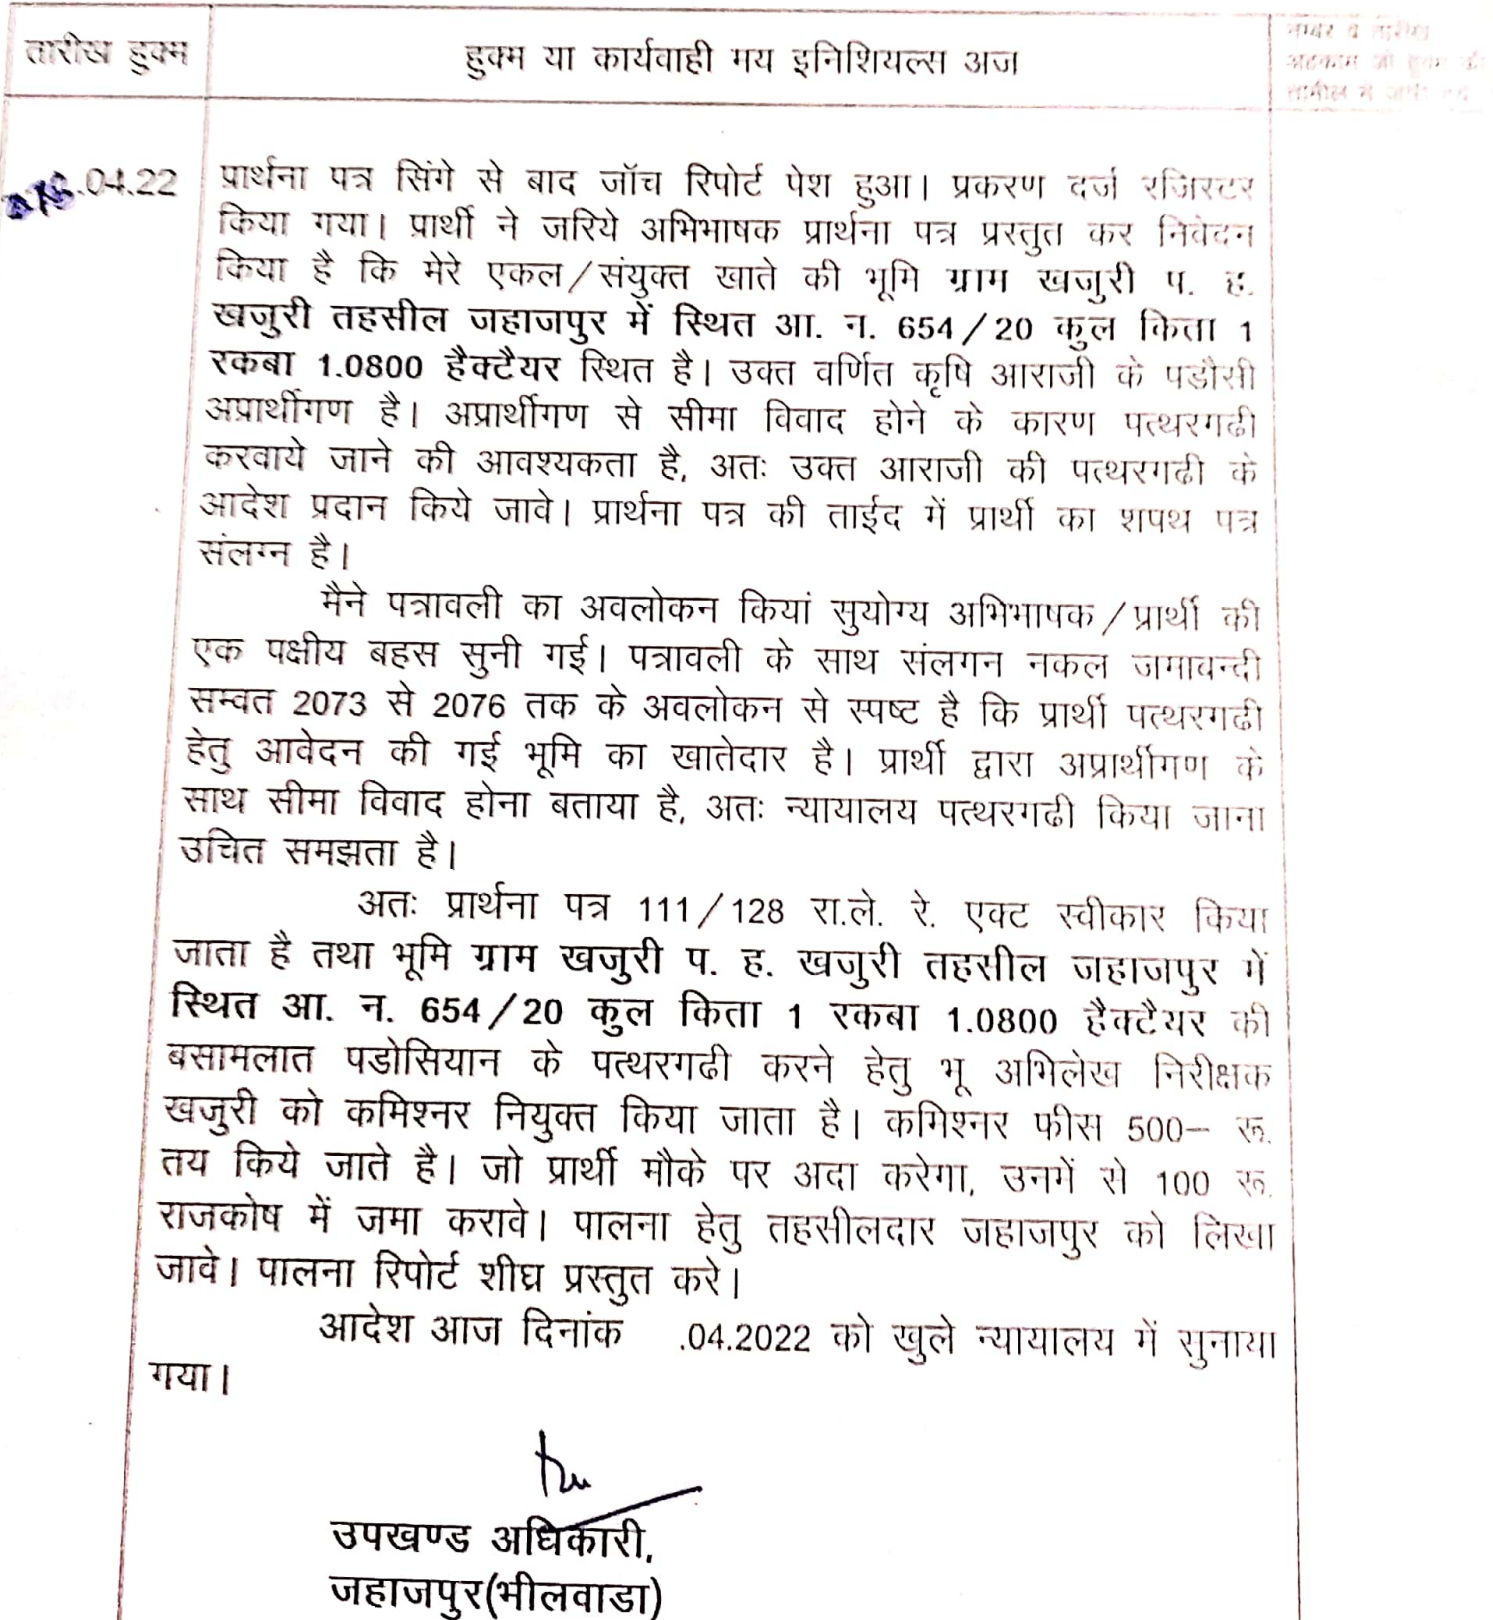 तारीख हुक्म
हुक्म या कार्यवाही मय इनिशियल्स अज
नम्बर व तारीख
अहकाम जो हुक्म की
तामील में जारी
.04.22
प्रार्थना पत्र सिंगे से बाद जॉच रिपोर्ट पेश हुआ। प्रकरण दर्ज रजिस्टर
किया गया। प्रार्थी ने जरिये अभिभाषक प्रार्थना पत्र प्रस्तुत कर निवेदन
किया है कि मेरे एकल/संयुक्त खाते की भूमि ग्राम खजुरी प. ह.
खजुरी तहसील जहाजपुर में स्थित आ. न. 654/20 कुल किता 1
रकबा 1.0800 हैक्टैयर स्थित है। उक्त वर्णित कृषि आराजी के पडौसी
अप्रार्थीगण है। अप्रार्थीगण से सीमा विवाद होने के कारण पत्थरगढी
करवाये जाने की आवश्यकता है, अतः उक्त आराजी की पत्थरगढी के
आदेश प्रदान किये जावे। प्रार्थना पत्र की ताईद में प्रार्थी का शपथ पत्र
संलग्न है।
मैने पत्रावली का अवलोकन कियां सुयोग्य अभिभाषक/प्रार्थी की
एक पक्षीय बहस सुनी गई। पत्रावली के साथ संलगन नकल जमाबन्दी
सम्वत 2073 से 2076 तक के अवलोकन से स्पष्ट है कि प्रार्थी पत्थरगढी
हेतु आवेदन की गई भूमि का खातेदार है। प्रार्थी द्वारा अप्रार्थीगण के
साथ सीमा विवाद होना बताया है, अतः न्यायालय पत्थरगढी किया जाना
उचित समझता है।
अतः प्रार्थना पत्र 111/128 रा.ले. रे. एक्ट स्वीकार किया
जाता है तथा भूमि ग्राम खजुरी प. ह. खजुरी तहसील जहाजपुर में
स्थित आ. न. 654/20 कुल किता 1 रकबा 1.0800 हैक्टैयर की
बसामलात पडोसियान के पत्थरगढी करने हेतु भू अभिलेख निरीक्षक
खजुरी को कमिश्नर नियुक्त किया जाता है। कमिश्नर फीस 500– रू.
तय किये जाते है। जो प्रार्थी मौके पर अदा करेगा, उनमें से 100 रू.
राजकोष में जमा करावे। पालना हेतु तहसीलदार जहाजपुर को लिखा
जावे। पालना रिपोर्ट शीघ्र प्रस्तुत करे।
आदेश आज दिनांक .04.2022 को खुले न्यायालय में सुनाया
गया।
उपखण्ड अधिकारी,
जहाजपुर(भीलवाडा)